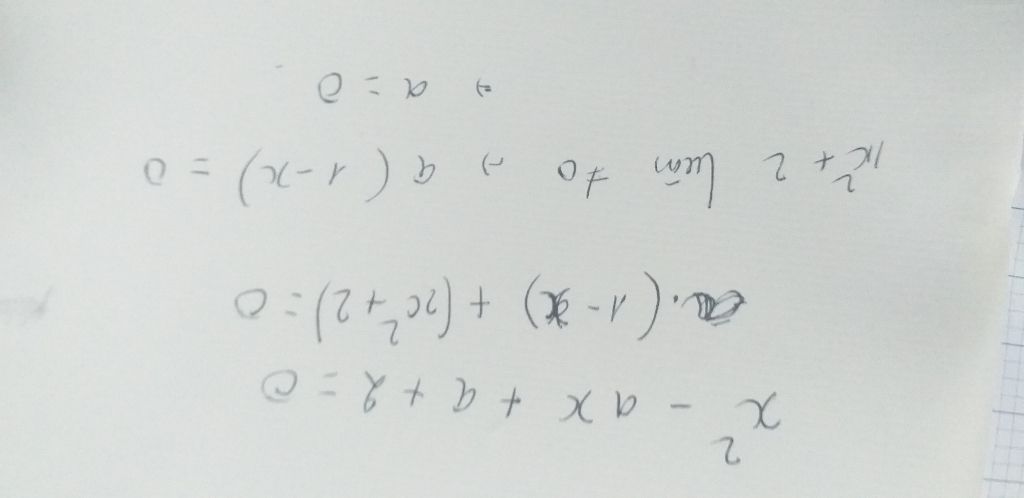 x² - ax + a + 2 = 0
a.(1-x) + (x²+2) = 0
x²+2 luôn ≠0 → a(1-x) = 0
⇒ a = 0